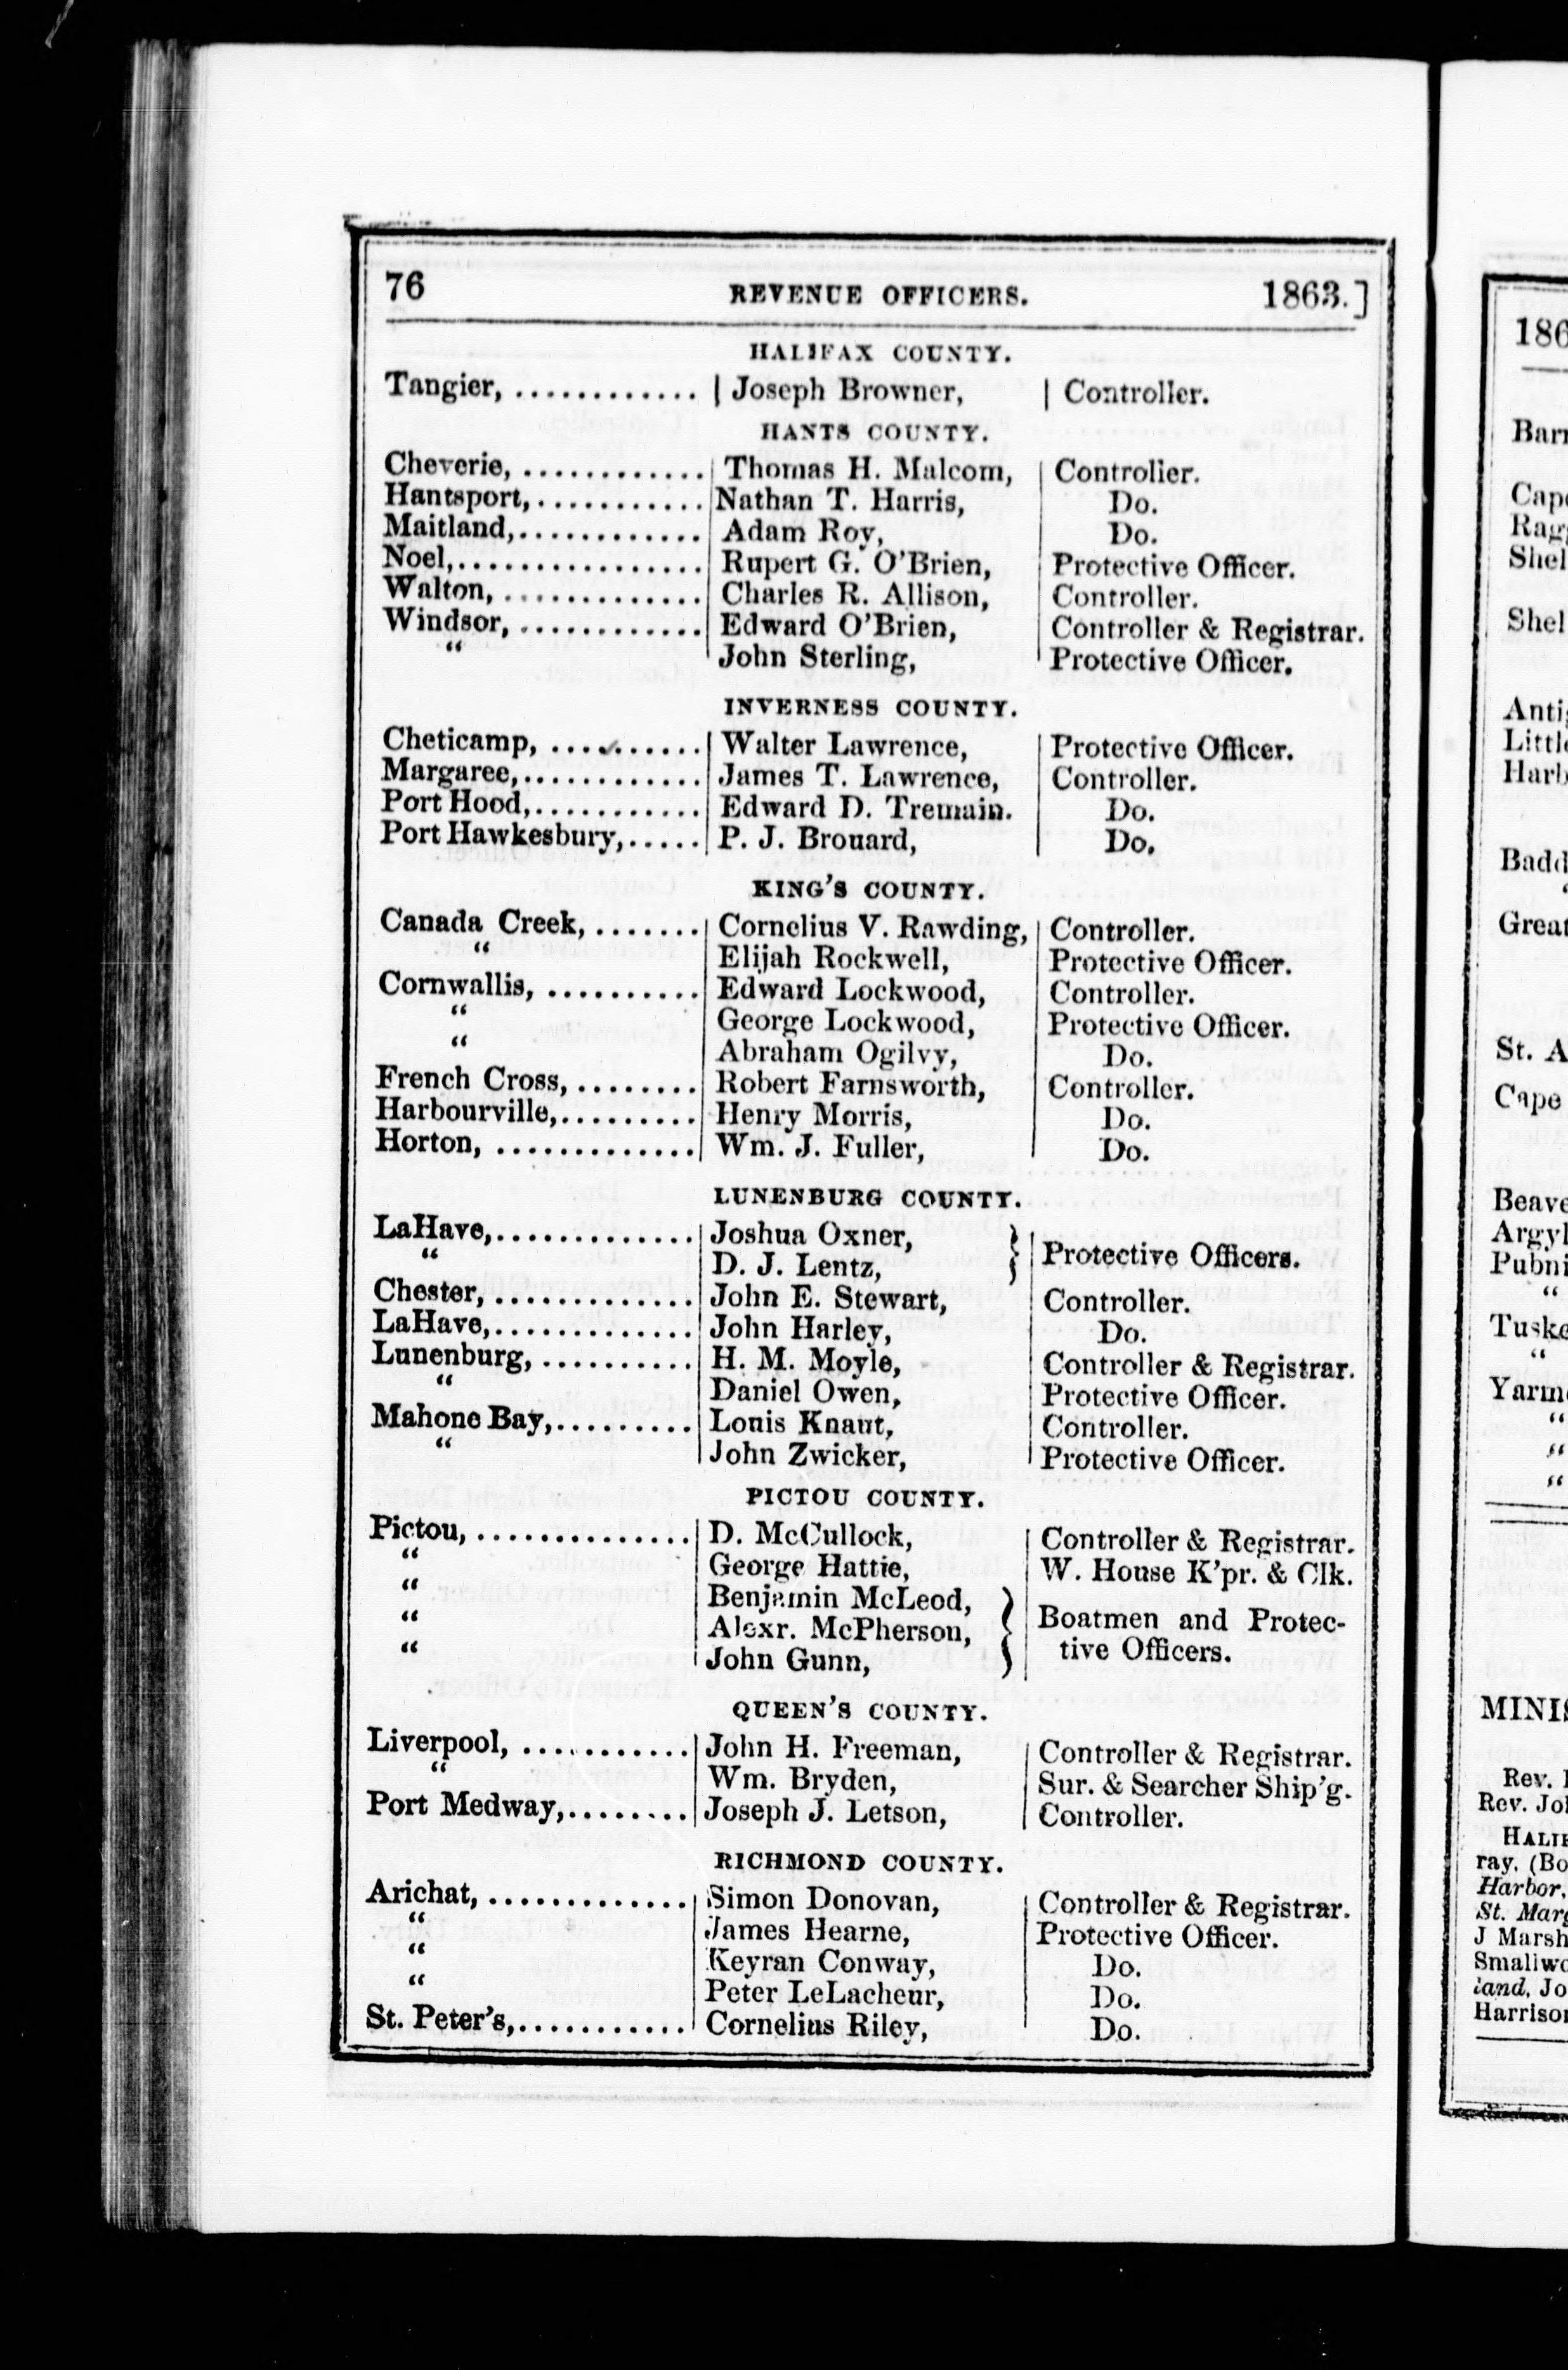 76 REVENUE OFFICERS. 1863.]
HALIFAX COUNTY.
Tangier, ............ | Joseph Browner, | Controller.
HANTS COUNTY.
Cheverie, ............ | Thomas H. Malcom, | Controller.
Hantsport, ........... | Nathan T. Harris, | Do.
Maitland, ............ | Adam Roy, | Do.
Noel, ................ | Rupert G. O'Brien, | Protective Officer.
Walton, ............. | Charles R. Allison, | Controller.
Windsor, ............ | Edward O'Brien, | Controller & Registrar.
“ | John Sterling, | Protective Officer.
INVERNESS COUNTY.
Cheticamp, .......... | Walter Lawrence, | Protective Officer.
Margaree, ............ | James T. Lawrence, | Controller.
Port Hood, ........... | Edward D. Tremain. | Do.
Port Hawkesbury, ..... | P. J. Brouard, | Do.
KING'S COUNTY.
Canada Creek, ....... | Cornelius V. Rawding, | Controller.
“ | Elijah Rockwell, | Protective Officer.
Cornwallis, .......... | Edward Lockwood, | Controller.
“ | George Lockwood, | Protective Officer.
“ | Abraham Ogilvy, | Do.
French Cross, ........ | Robert Farnsworth, | Controller.
Harbourville, ......... | Henry Morris, | Do.
Horton, ............. | Wm. J. Fuller, | Do.
LUNENBURG COUNTY.
LaHave, ............. | Joshua Oxner, } | Protective Officers.
“ | D. J. Lentz,
Chester, ............. | John E. Stewart, | Controller.
LaHave, ............. | John Harley, | Do.
Lunenburg, .......... | H. M. Moyle, | Controller & Registrar.
“ | Daniel Owen, | Protective Officer.
Mahone Bay, ......... | Louis Knaut, | Controller.
“ | John Zwicker, | Protective Officer.
PICTOU COUNTY.
Pictou, .............. | D. McCullock, | Controller & Registrar.
“ | George Hattie, | W. House K'pr. & Clk.
“ | Benjamin McLeod, } | Boatmen and Protec-
“ | Alexr. McPherson, | tive Officers.
“ | John Gunn,
QUEEN'S COUNTY.
Liverpool, ........... | John H. Freeman, | Controller & Registrar.
“ | Wm. Bryden, | Sur. & Searcher Ship'g.
Port Medway, ........ | Joseph J. Letson, | Controller.
RICHMOND COUNTY.
Arichat, ............. | Simon Donovan, | Controller & Registrar.
“ | James Hearne, | Protective Officer.
“ | Keyran Conway, | Do.
“ | Peter LeLacheur, | Do.
St. Peter's, ........... | Cornelius Riley, | Do.
186
Barr
Cape
Ragg
Shel
Shel
Antig
Little
Harb
Badd
“
Great
St. A
Cape
Beave
Argyl
Pubni
“
Tuske
“
Yarmo
“
“
“
MINIS
Rev.
Rev. Jo
HALIF
ray, (Bo
Harbor,
St. Marg
J Marsh
Smallwo
land, Jo
Harrison